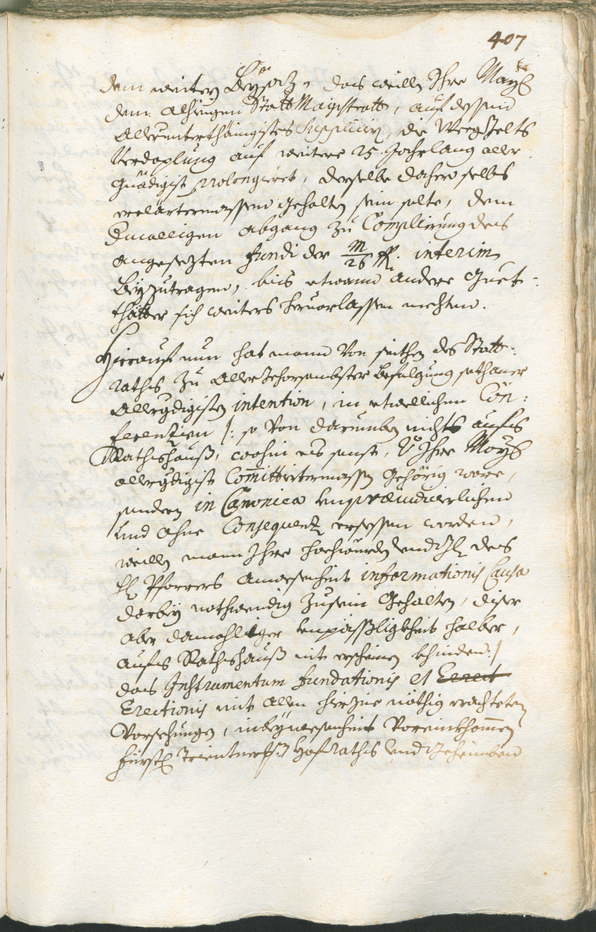 407
dem weitern Beysaz, das weillen Ihre May: tt
dem alhiegen Statt Magistratt, auf dessen
allerunterthänigistes Suppliciren, die Umgelts
Verdoplung auf weitere 25 Jahr lang aller-
gnädigist prolongieret, derselbe daher selbs
erclärtermassen gehalten sein solte, dem
Emaligen abgang zu Complirung des
angesezten fundi der m/26 fl. interim
Beyzutragen, bis etwann andere Guet-
thätter sich weiters hervorlassen mechten.
Hierauf nun hat mann von seithen des Statt-
raths zu aller gehorsambster Befolgung sothaner
Allergdigisten intention, in etwelchen Con-
ferentien /: so von darumben nichts aufs
Rathshauß, wohin es sonst, v Ihre Mays
allergdigist Committirtermassen gehörig ware,
sondern in Canonica unpræiudicierlichen
und ohne Consequenz ersessen worden,
weillen mann Ihre hochwürden und des
H Pfarrers anwesenheit informationis Causa
darbey nothwendig zusein gehalten, diser
aber damahliger unpäßligkheit halber,
aufs Rathshauß nit erscheinen khinden :/
das Instrumentum fundationis et Erect
Erectionis mit allen hierzue nöthig erachteten
Vorsehungen, in beywesenheit
fürstl Trientnerischen Hofraths und Geheimben